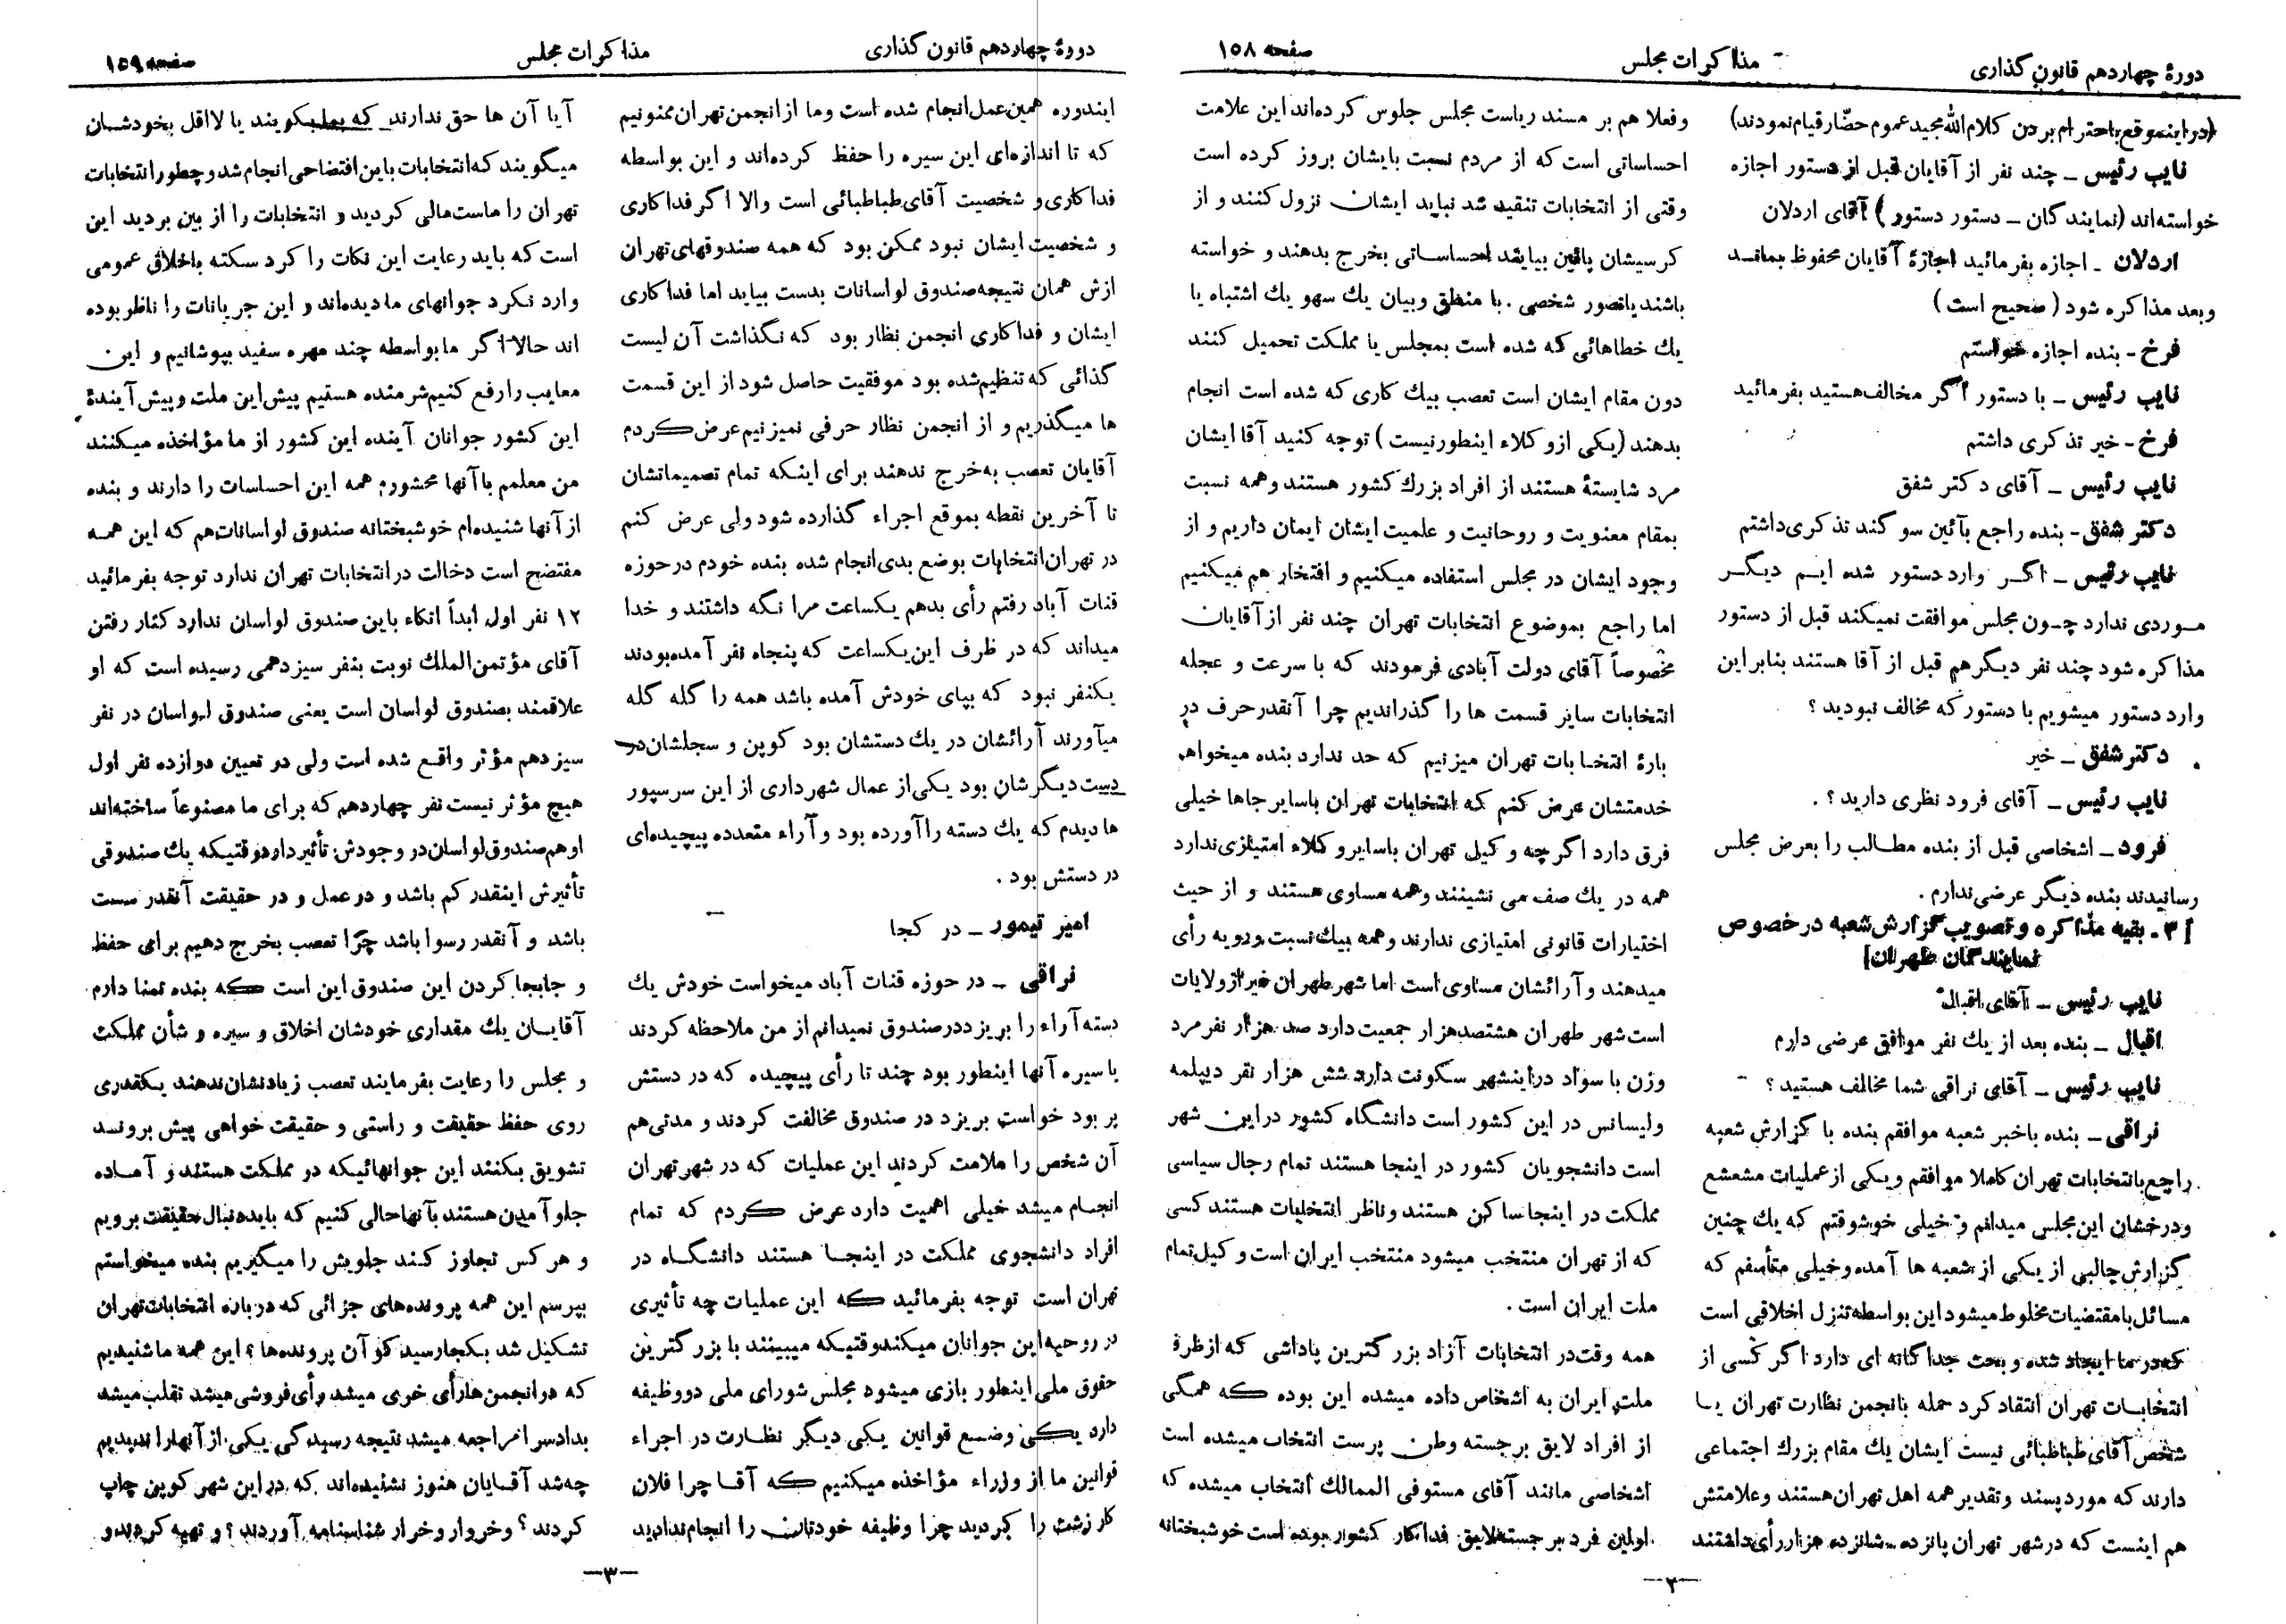 دورهٔ چهاردهم قانون گذاری
مذاکرات مجلس
صفحه ۱۵۸
(در اینموقع باحترام بردن کلام‌الله مجید عموم حضّار قیام نمودند)
نایب رئیس ـ چند نفر از آقایان قبل از دستور اجازه
خواسته‌اند (نمایندگان ـ دستور دستور) آقای اردلان
اردلان ـ اجازه بفرمائید اجازهٔ آقایان محفوظ بماند
وبعد مذاکره شود (صحیح است)
فرخ ـ بنده اجازه خواستم
نایب رئیس ـ با دستور اگر مخالف هستید بفرمائید
فرخ ـ خیر تذکری داشتم
نایب رئیس ـ آقای دکتر شفق
دکتر شفق ـ بنده راجع بآئین سوگند تذکری داشتم
نایب رئیس ـ اگر وارد دستور شده ایم دیگر
موردی ندارد چون مجلس موافقت نمیکند قبل از دستور
مذاکره شود چند نفر دیگر هم قبل از آقا هستند بنابراین
وارد دستور میشویم با دستور که مخالف نبودید ؟
دکتر شفق ـ خیر
نایب رئیس ـ آقای فرود نظری دارید ؟ .
فرود ـ اشخاصی قبل از بنده مطالب را بعرض مجلس
رسانیدند بنده دیگر عرضی ندارم .
[۳ـ بقیه مذاکره و تصویب گزارش شعبه در خصوص
نمایندگان طهران]
نایب رئیس ـ آقای اقبال
اقبال ـ بنده بعد از یك نفر موافق عرضی دارم
نایب رئیس ـ آقای نراقی شما مخالف هستید ؟
نراقی ـ بنده باخبر شعبه موافقم بنده با گزارش شعبه
راجع بانتخابات تهران کاملا موافقم ویکی از عملیات مشعشع
ودرخشان این مجلس میدانم و خیلی خوشوقتم که یك چنین
گزارش جالبی از یکی از شعبه ها آمده وخیلی متأسفم که
مسائل بامقتضیات مخلوط میشود این بواسطه تنزل اخلاقی است
که در ما ایجاد شده و بحث جداگانه ای دارد اگر کسی از
انتخابات تهران انتقاد کرد حمله بانجمن نظارت تهران یا
شخص آقای طباطبائی نیست ایشان یك مقام بزرك اجتماعی
دارند که مورد پسند و تقدیر همه اهل تهران هستند وعلامتش
هم اینست که در شهر تهران پانزده ـ شانزده هزار رأی داشتند
وفعلا هم بر مسند ریاست مجلس جلوس کرده‌اند این علامت
احساساتی است که از مردم نسبت بایشان بروز کرده است
وقتی از انتخابات تنقید شد نباید ایشان نزول کنند و از
کرسیشان پائین بیایند احساساتی بخرج بدهند و خواسته
باشند یا تصور شخصی . با منطق وبیان یك سهو یك اشتباه یا
یك خطاهائی که شده است بمجلس یا مملکت تحمیل کنند
دون مقام ایشان است تعصب بیك کاری که شده است انجام
بدهند (یکی از وکلاء اینطور نیست) توجه کنید آقا ایشان
مرد شایستهٔ هستند از افراد بزرك کشور هستند وهمه نسبت
بمقام معنویت و روحانیت و علمیت ایشان ایمان داریم و از
وجود ایشان در مجلس استفاده میکنیم و افتخار هم میکنیم
اما راجع بموضوع انتخابات تهران چند نفر از آقایان
مخصوصاً آقای دولت آبادی فرمودند که با سرعت و عجله
انتخابات سایر قسمت ها را گذراندیم چرا آنقدر حرف در
بارهٔ انتخابات تهران میزنیم که حد ندارد بنده میخواهم
خدمتشان عرض کنم که انتخابات تهران باسایر جاها خیلی
فرق دارد اگرچه وکیل تهران باسایر وکلاء امتیازی ندارد
همه در یك صف می نشینند وهمه مساوی هستند و از حیث
اختیارات قانونی امتیازی ندارند وهمه بیك نسبت ورویه رأی
میدهند وآرائشان مساوی است اما شهر طهران غیر از ولایات
است شهر طهران هشتصد هزار جمعیت دارد صد هزار نفر مرد
وزن با سواد در اینشهر سکونت دارد شش هزار نفر دیپلمه
ولیسانس در این کشور است دانشگاه کشور در این شهر
است دانشجویان کشور در اینجا هستند تمام رجال سیاسی
مملکت در اینجا ساکن هستند وناظر انتخابات هستند کسی
که از تهران منتخب میشود منتخب ایران است و کیل تمام
ملت ایران است .
همه وقت در انتخابات آزاد بزرگترین پاداشی که از طرف
ملت ایران به اشخاص داده میشده این بوده که همگی
از افراد لایق برجسته وطن پرست انتخاب میشده است
اشخاصی مانند آقای مستوفی الممالك انتخاب میشده که
اولین فرد برجسته لایق فداکار کشور بوده است خوشبختانه
ـ۲ـ
دورهٔ چهاردهم قانون گذاری
مذاکرات مجلس
صفحه ۱۵۹
ایندوره همین عمل انجام شده است وما از انجمن تهران ممنونیم
که تا اندازه‌ای این سیره را حفظ کرده‌اند و این بواسطه
فداکاری و شخصیت آقای طباطبائی است والا اگر فداکاری
و شخصیت ایشان نبود ممکن بود که همه صندوقهای تهران
ازش همان نتیجه صندوق لواسانات بدست بیاید اما فداکاری
ایشان و فداکاری انجمن نظار بود که نگذاشت آن لیست
گذائی که تنظیم شده بود موفقیت حاصل شود از این قسمت
ها میگذریم و از انجمن نظار حرفی نمیزنیم عرض کردم
آقایان تعصب به خرج ندهند برای اینکه تمام تصمیماتشان
تا آخرین نقطه بموقع اجراء گذارده شود ولی عرض کنم
در تهران انتخابات بوضع بدی انجام شده بنده خودم در حوزه
قنات آباد رفتم رأی بدهم یکساعت مرا نگه داشتند و خدا
میداند که در ظرف این یکساعت که پنجاه نفر آمده بودند
یکنفر نبود که بپای خودش آمده باشد همه را گله گله
میآورند آرائشان در یك دستشان بود کوپن و سجلشان در
دست دیگرشان بود یکی از عمال شهرداری از این سرسپور
ها دیدم که یك دسته را آورده بود و آراء متعدده پیچیده‌ای
در دستش بود .
امیر تیمور ـ در کجا
نراقی ـ در حوزه قنات آباد میخواست خودش یك
دسته آراء را بریزد در صندوق نمیدانم از من ملاحظه کردند
یا سیره آنها اینطور بود چند تا رأی پیچیده که در دستش
پر بود خواست بریزد در صندوق مخالفت کردند و مدتی هم
آن شخص را ملامت کردند این عملیات که در شهر تهران
انجام میشد خیلی اهمیت دارد عرض کردم که تمام
افراد دانشجوی مملکت در اینجا هستند دانشگاه در
تهران است توجه بفرمائید که این عملیات چه تأثیری
در روحیه این جوانان میکند وقتیکه میبینند با بزرگترین
حقوق ملی اینطور بازی میشود مجلس شورای ملی دو وظیفه
دارد یکی وضع قوانین یکی دیگر نظارت در اجراء
قوانین ما از وزراء مؤاخذه میکنیم که آقا چرا فلان
کار زشت را کردید چرا وظیفه خودتان را انجام ندادید
آیا آن ها حق ندارند که بما بگویند یا لااقل بخودشان
میگویند که انتخابات باین افتضاحی انجام شد و چطور انتخابات
تهران را ماست مالی کردید و انتخابات را از بین بردید این
است که باید رعایت این نکات را کرد سکته باخلاق عمومی
وارد نکرد جوانهای ما دیده‌اند و این جریانات را ناظر بوده
اند حالا اگر ما بواسطه چند مهره سفید بپوشانیم و این
معایب را رفع کنیم شرمنده هستیم پیش این ملت و پیش آیندهٔ
این کشور جوانان آینده این کشور از ما مؤاخذه میکنند
من معلمم با آنها محشورم همه این احساسات را دارند و بنده
از آنها شنیده‌ام خوشبختانه صندوق لواسانات هم که این همه
مفتضح است دخالت در انتخابات تهران ندارد توجه بفرمائید
۱۲ نفر اول ابداً اتکاء باین صندوق لواسان ندارد کنار رفتن
آقای مؤتمن‌الملك نوبت بنفر سیزدهمی رسیده است که او
علاقمند بصندوق لواسان است یعنی صندوق لواسان در نفر
سیزدهم مؤثر واقع شده است ولی در تعیین دوازده نفر اول
هیچ مؤثر نیست نفر چهاردهم که برای ما مصنوعاً ساخته‌اند
او هم صندوق لواسان در وجودش تأثیر دارد وقتیکه یك صندوقی
تأثیرش اینقدر کم باشد و در عمل و در حقیقت آنقدر سست
باشد و آنقدر رسوا باشد چرا تعصب بخرج دهیم برای حفظ
و جابجا کردن این صندوق این است که بنده تمنا دارم
آقایان یك مقداری خودشان اخلاق و سیره و شأن مملکت
و مجلس را رعایت بفرمایند تعصب زیاد نشان ندهند یکقدری
روی حفظ حقیقت و راستی و حقیقت خواهی پیش بروند
تشویق بکنند این جوانهائیکه در مملکت هستند و آماده
جلو آمدن هستند بآنها حالی کنیم که باید دنبال حقیقت برویم
و هر کس تجاوز کند جلویش را میگیریم بنده میخواستم
بپرسم این همه پرونده‌های جزائی که درباره انتخابات تهران
تشکیل شد بکجا رسید کو آن پرونده‌ها ؟ این همه ما شنیدیم
که در انجمن ها رأی خری میشد رأی فروشی میشد تقلب میشد
بدادسرا مراجعه میشد نتیجه رسیدگی یکی از آنها را ندیدیم
چه شد آقایان هنوز نشنیده‌اند که در این شهر کوپن چاپ
کردند ؟ وخروار وخرار شناسنامه آوردند ؟ و تهیه کردند و
ـ۳ـ